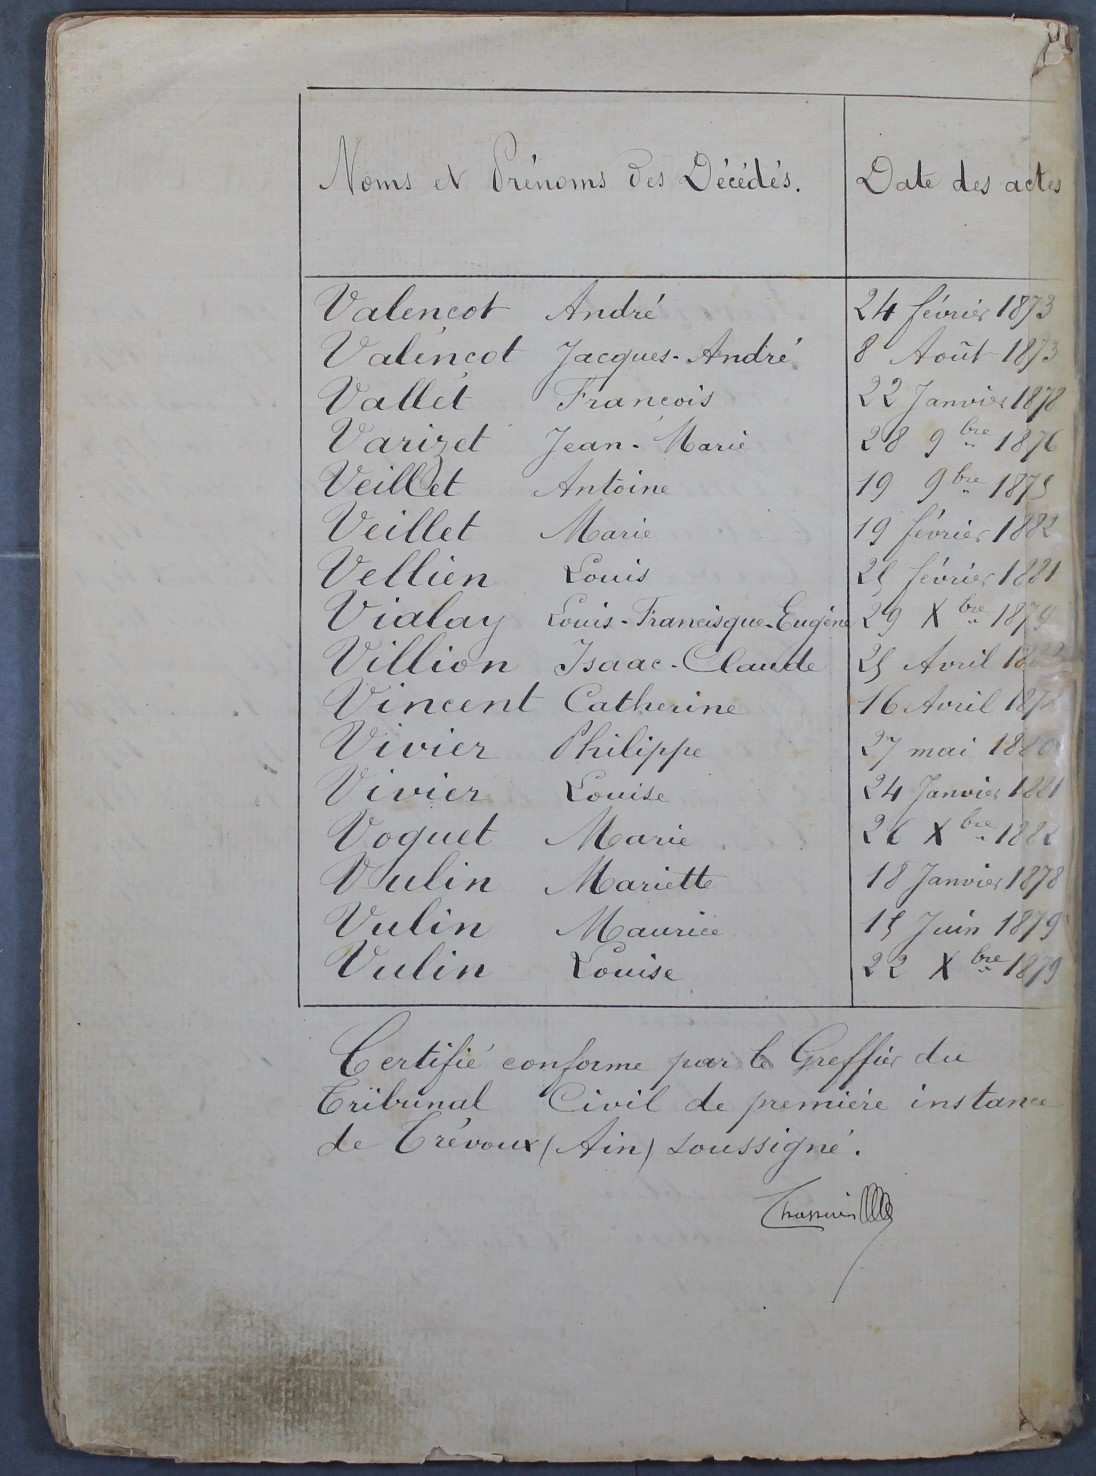 Noms et Prénoms des Décédés. Date des actes
Valencot André 24 février 1873
Valencot Jacques-André 8 Août 1873
Vallet Francois 22 Janvier 1878
Varizet Jean-Marie 28 9bre 1876
Veillet Antoine 19 9bre 1875
Veillet Marie 19 février 1882
Vellien Louis 25 février 1881
Vialay Louis-Francisque-Eugène 29 Xbre 1879
Villion Isaac-Claude 25 Avril
Vincent Catherine 16 Avril
Vivier Philippe 27 mai 1880
Vivier Louise 24 Janvier 1881
Voquet Marie 26 Xbre 1882
Vulin Mariette 18 Janvier 1878
Vulin Maurice 15 Juin 1879
Vulin Louise 22 Xbre 1879
Certifié conforme par le Greffier du
Tribunal Civil de première instance
de Trévoux (Ain) soussigné.